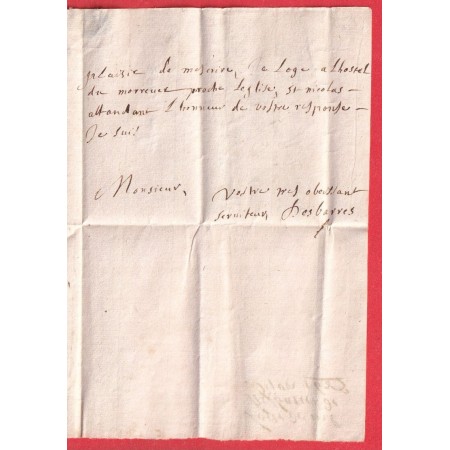 plaisir de mescrire, Je loge a lhostel
du morveux proche leglise, st nicolas -
attandant lhonneur de vostre response -
Je suis
Monsieur, Vostre tres obeissant
serviteur, Desbarres